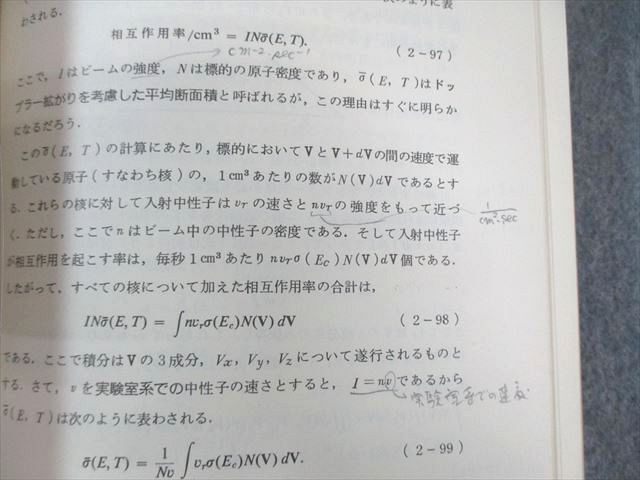 のように表
わされる.
相互作用率/cm³ = INσ̄(E, T). (2-97)
cm⁻²・sec⁻¹
ここで, I はビームの強度, N は標的の原子密度であり, σ̄(E, T) はドッ
プラー拡がりを考慮した平均断面積と呼ばれるが, この理由はすぐに明らか
になるだろう.
この σ̄(E, T) の計算にあたり, 標的において V と V+dV の間の速度で運
動している原子(すなわち核)の, 1 cm³ あたりの数が N(V)dV であるとす
る. これらの核に対して入射中性子は vr の速さと nvr の強度をもって近づ
1/cm²・sec
く. ただし, ここで n はビーム中の中性子の密度である. そして入射中性子
が相互作用を起こす率は, 毎秒 1 cm³ あたり nvrσ(Ec)N(V)dV 個である.
したがって, すべての核について加えた相互作用率の合計は,
INσ̄(E, T) = ∫nvrσ(Ec)N(V) dV (2-98)
である. ここで積分は V の 3 成分, Vx, Vy, Vz について遂行されるものと
する. さて, v を実験室系での中性子の速さとすると, I=nv であるから
実験室系での速度
σ̄(E, T) は次のように表わされる.
σ̄(E, T) = 1/Nv ∫vrσ(Ec)N(V) dV. (2-99)